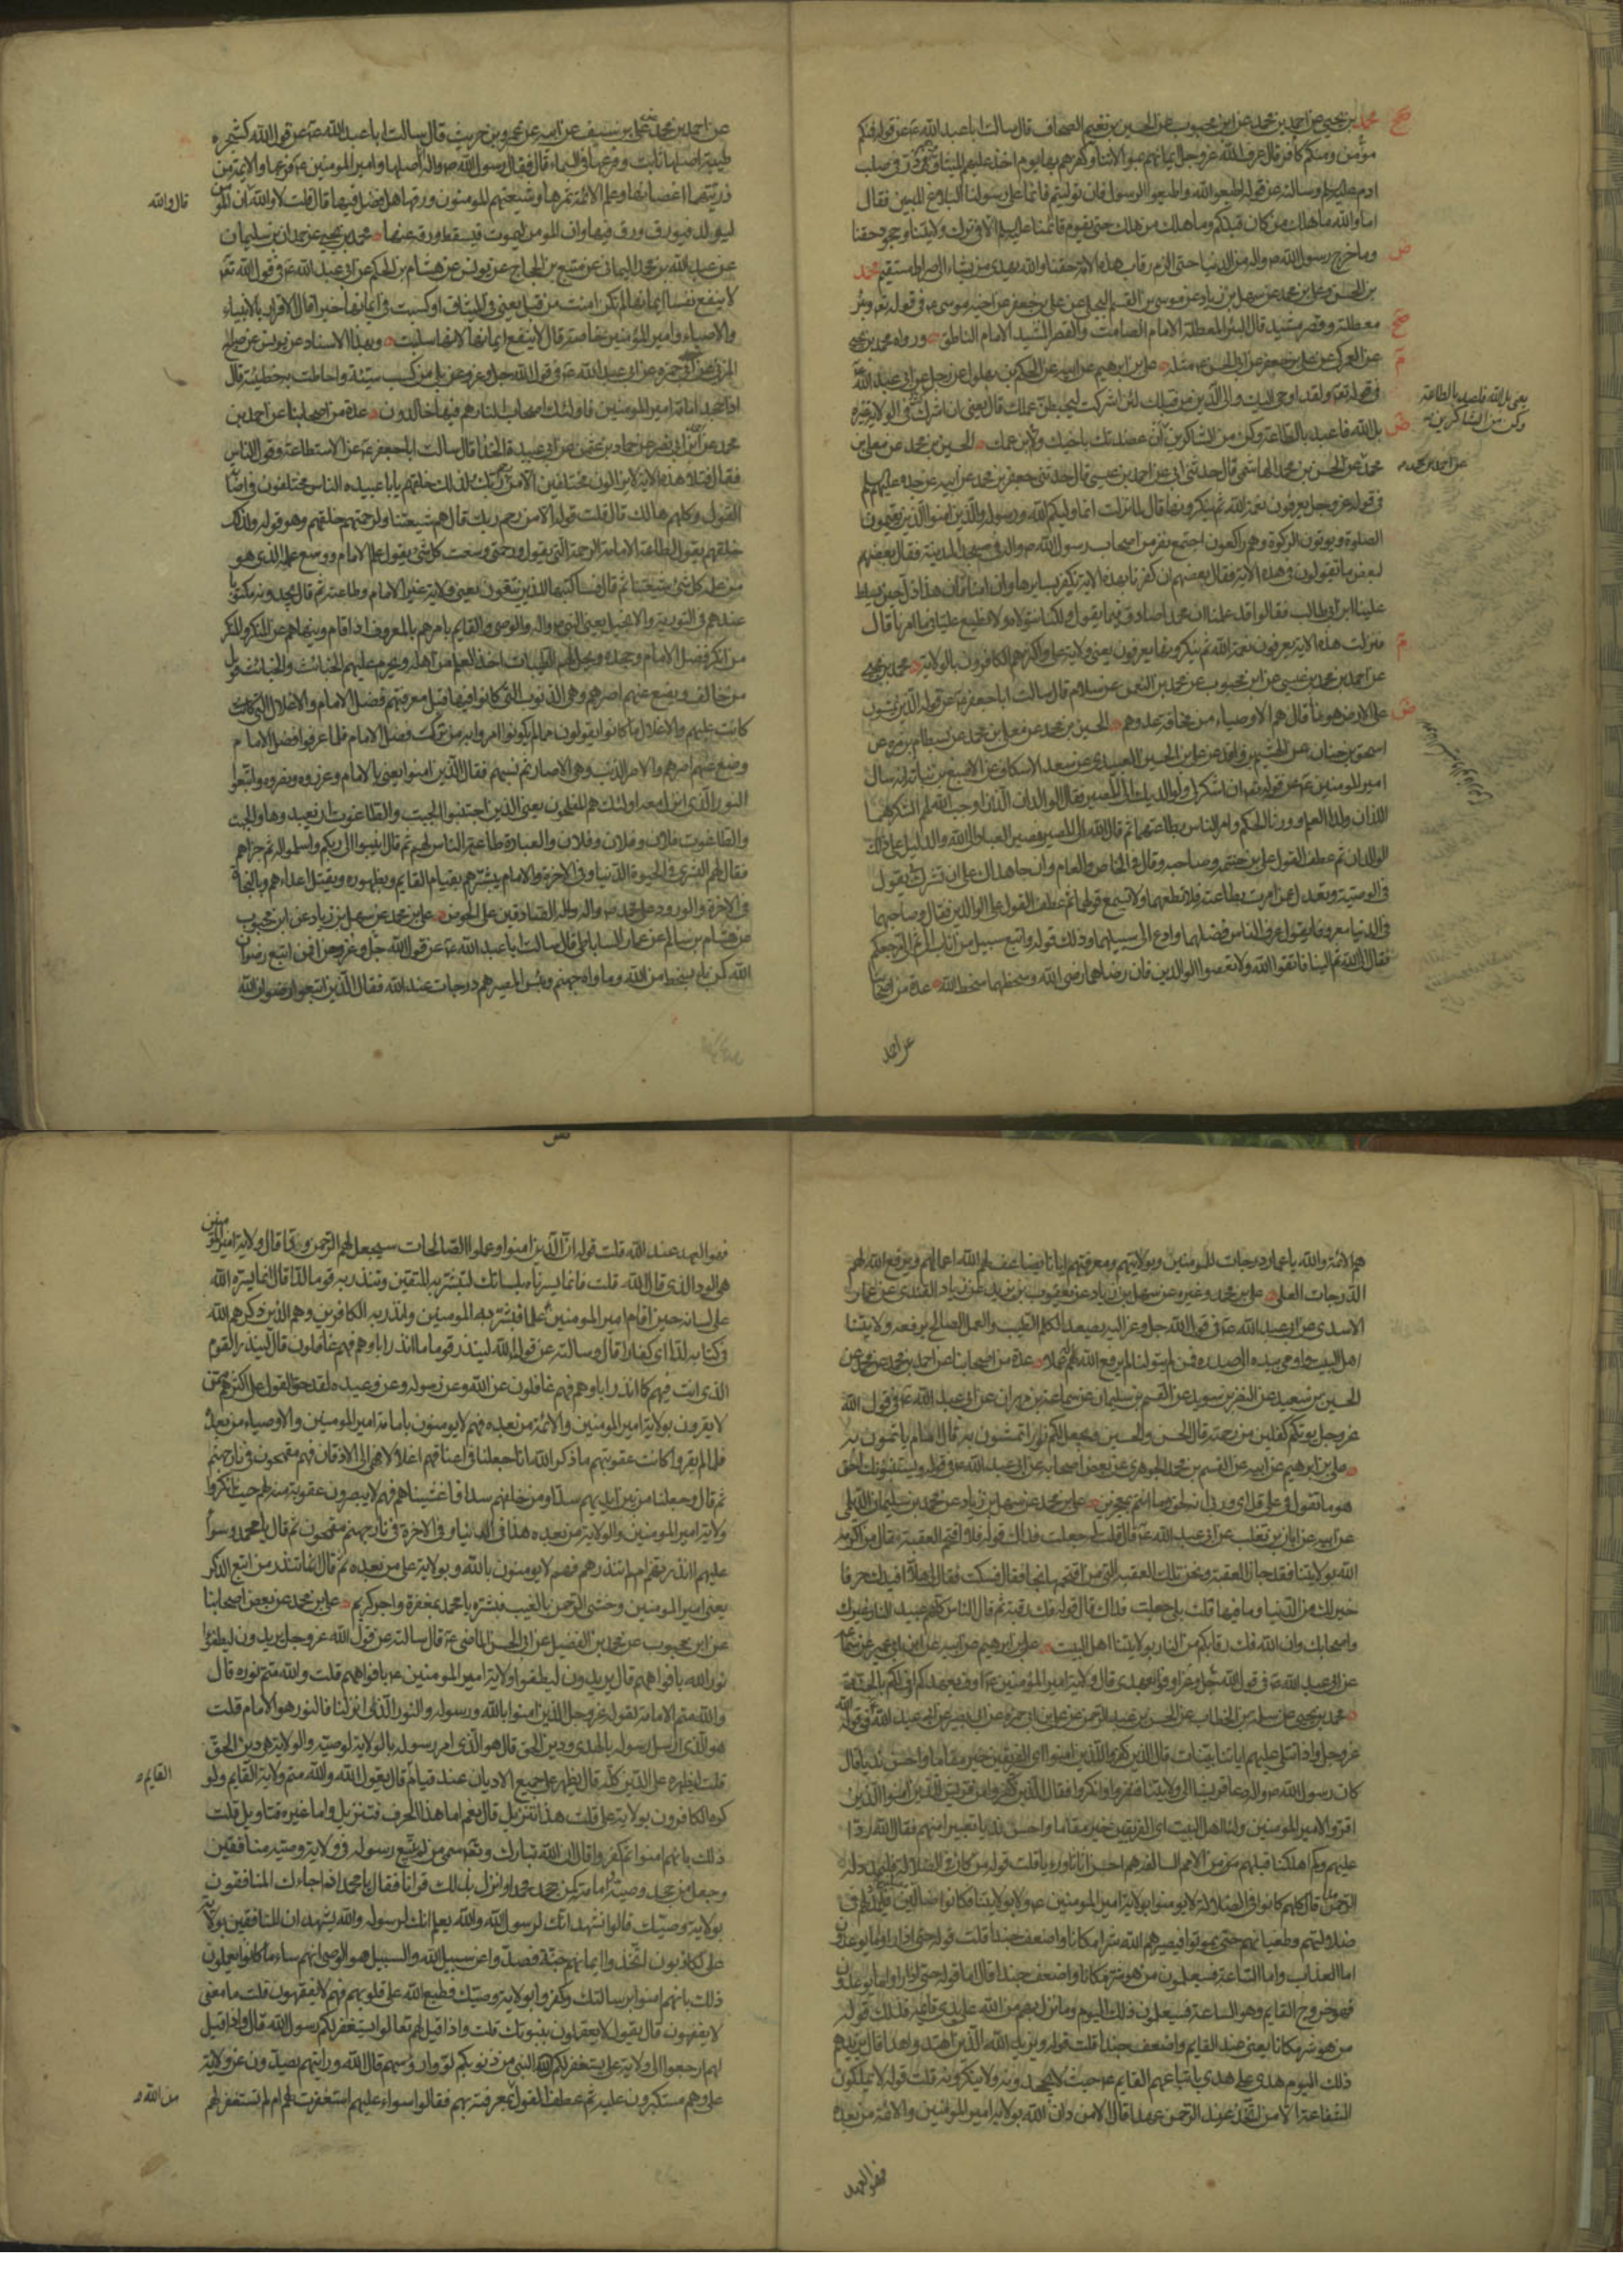 محمد بن يحيى عن احمد بن محمد عن ابن محبوب عن الحسين بن نعيم الصحاف قال سالت ابا عبد الله ع عن قوله فمنكم
مؤمن ومنكم كافر فقال عرف الله عز وجل ايمانهم بموالاتنا وكفرهم بها يوم اخذ عليهم الميثاق وهم ذر في صلب
ادم عليه السلم وسالته عن قوله اطيعوا الله واطيعوا الرسول فان توليتم فانما على رسولنا البلاغ المبين فقال
اما والله ما هلك من كان قبلكم وما هلك من هلك حتى يقوم قائمنا عليه السلم الا في ترك ولايتنا وجحود حقنا
وما خرج رسول الله ص واله من الدنيا حتى الزم رقاب هذه الامة حقنا والله يهدى من يشاء الى صراط مستقيم محمد
بن الحسن وعلى بن محمد عن سهل بن زياد عن موسى بن القسم البجلى عن على بن جعفر عن اخيه موسى ع فى قوله تع وبئر
معطلة وقصر مشيد قال البئر المعطلة الامام الصامت والقصر المشيد الامام الناطق ورواه محمد بن يحيى
عن العمركى عن على بن جعفر عن ابى الحسن ع مثله على بن ابرهيم عن ابيه عن الحكم بن بهلول عن رجل عن ابى عبد الله
فى قوله تع ولقد اوحى اليك والى الذين من قبلك لئن اشركت ليحبطن عملك قال يعنى ان اشركت فى الولاية غيره
بل الله فاعبد بالطاعة وكن من الشاكرين ان عضدتك باخيك وابن عمك الحسين بن محمد عن معلى بن
محمد عن الحسن بن محمد الهاشمى قال حدثنى ابى عن احمد بن عيسى قال حدثنى جعفر بن محمد عن ابيه عن جده عليهم السلم
فى قوله عز وجل يعرفون نعمة الله ثم ينكرونها قال لما نزلت انما وليكم الله ورسوله والذين امنوا الذين يقيمون
الصلوة ويوتون الزكوة وهم راكعون اجتمع نفر من اصحاب رسول الله ص واله فى مسجد المدينة فقال بعضهم
لبعض ما تقولون فى هذه الاية فقال بعضهم ان كفرنا بهذه الاية نكفر بسايرها وان امنا فان هذا ذل حين يسلط
علينا ابن ابى طالب فقالوا قد علمنا ان محمدا صادق فيما يقول ولكنا نتولاه ولا نطيع عليا فى ما امرنا قال
فنزلت هذه الاية يعرفون نعمة الله ثم ينكرونها يعرفون يعنى ولاية على واكثرهم الكافرون بالولاية محمد بن يحيى
عن احمد بن محمد بن عيسى عن ابن محبوب عن محمد بن النعمن عن سلام قال سالت ابا جعفر ع عن قوله الذين يمشون
على الارض هونا قال هم الاوصياء من مخافة عدوهم الحسين بن محمد عن معلى بن محمد عن بسطام بن مرة عن
اسحق بن حسان عن الهيثم بن واقد عن على بن الحسين العبدى عن سعد الاسكاف عن الاصبغ بن نباتة انه سال
امير المومنين ع عن قوله تع ان اشكر لى ولوالديك الى المصير فقال الوالدان اللذان اوجب الله لهم الشكر هما
اللذان ولدا العلم وورثا الحكم وامر الناس بطاعتهما ثم قال الله الى المصير فمصير العباد الى الله والدليل على ذلك
الوالدان ثم عطف القول على بن حنتمة وصاحبه وقال فى الخاص والعام وان جاهداك على ان تشرك بى يقول
فى الوصية وتعدل عمن امرت بطاعته فلا تطعهما ولا تسمع قولهما ثم عطف القول على الوالدين فقال وصاحبهما
فى الدنيا معروفا يقول عرف الناس فضلهما وادع الى سبيلهما وذلك قوله واتبع سبيل من اناب الى ثم الى مرجعكم
فقال الى الله ثم الينا فاتقوا الله ولا تعصوا الوالدين فان رضاهما رضى الله وسخطهما سخط الله عدة من اصحابنا
عن احمد
يعنى بل الله فاعبد بالطاعة
وكن من الشاكرين
عن احمد بن محمد
عن احمد بن محمد عن على بن سيف عن ابيه عن عمرو بن حريث قال سالت ابا عبد الله ع عن قول الله كشجرة
طيبة اصلها ثابت وفرعها فى السماء قال فقال رسول الله ص واله اصلها وامير المومنين ع فرعها والائمة من
ذريتهما اغصانها وعلم الائمة ثمرها وشيعتهم المومنون ورقها هل فضل فيها قال قلت لا والله ان المومن
ليولد فيورق ورق فيها وان المومن ليموت فيسقط ورقة عنها محمد بن يحيى عن حمدان بن سليمان
عن عبد الله بن محمد اليمانى عن منيع بن الحجاج عن يونس عن هشام بن الحكم عن ابى عبد الله ع فى قول الله تع
لا ينفع نفسا ايمانها لم تكن امنت من قبل يعنى فى الميثاق او كسبت فى ايمانها خيرا قال الاقرار بالانبياء
والاوصياء وامير المؤمنين خاصة قال لا ينفع ايمانها لانها سلبت وبهذا الاسناد عن يونس عن صباح
المزنى عن ابى حمزه عن ابى عبد الله ع فى قول الله جل وعز بلى من كسب سيئة واحاطت به خطيئته قال
اذا جحد امامة امير المومنين فاولئك اصحاب النار هم فيها خالدون عدة من اصحابنا عن احمد بن
محمد عن ابن ابى نصر عن حماد بن عثمن عن ابى عبيدة الحذا قال سالت ابا جعفر ع عن الاستطاعة وقول الناس
فقال وتلا هذه الاية ولا يزالون مختلفين الا من رحم ربك ولذلك خلقهم يا ابا عبيده الناس مختلفون فى اصابة
القول وكلهم هالك قال قلت قوله الا من رحم ربك قال هم شيعتنا ولرحمته خلقهم وهو قوله ولذلك
خلقهم يقول لطاعة الامام الرحمة التى يقول ورحمتى وسعت كل شئ يقول علم الامام ووسع علمه الذى هو
من علمه كل شئ هم شيعتنا ثم قال فساكتبها للذين يتقون يعنى ولاية غير الامام وطاعته ثم قال يجدونه مكتوبا
عندهم فى التورية والانجيل يعنى النبى ص واله والوصى والقايم يامرهم بالمعروف اذا قام وينهاهم عن المنكر والمنكر
من انكر فضل الامام وجحده ويحل لهم الطيبات اخذ العلم من اهله ويحرم عليهم الخبائث والخبائث قول
من خالف ويضع عنهم اصرهم وهى الذنوب التى كانوا فيها قبل معرفتهم فضل الامام والاغلال التى كانت
كانت عليهم والاغلال ما كانوا يقولون مما لم يكونوا امروا به من ترك فضل الامام فلما عرفوا فضل الامام
وضع عنهم اصرهم والاصر الذنب وهى الاصار ثم نسبهم فقال الذين امنوا يعنى بالامام وعزروه ونصروه واتبعوا
النور الذى انزل معه اولئك هم المفلحون يعنى الذين اجتنبوا الجبت والطاغوت ان يعبدوها والجبت
والطاغوت فلان وفلان وفلان والعبادة طاعة الناس لهم ثم قال انيبوا الى ربكم واسلموا له ثم جزاهم
فقال لهم البشرى فى الحيوة الدنيا وفى الاخرة والامام يبشرهم بقيام القايم وبظهوره وبقتل اعدائهم وبالنجاة
فى الاخرة والورود على محمد ص واله واله الصادقين على الحوض على بن محمد عن سهل بن زياد عن ابن محبوب
عن هشام بن سالم عن عمار الساباطى قال سالت ابا عبد الله ع عن قول الله جل وعز افمن اتبع رضوان
الله كمن باء بسخط من الله وماواه جهنم وبئس المصير هم درجات عند الله فقال الذين اتبعوا رضوان الله
قال والله
هم الائمة والله يا عمار درجات للمومنين وبولايتهم ومعرفتهم ايانا يضاعف لهم الله اعمالهم ويرفع الله لهم
الدرجات العلى على بن محمد وغيره عن سهل بن زياد عن يعقوب بن يزيد عن زياد القندى عن عمار
الاسدى عن ابى عبد الله ع فى قول الله جل وعز اليه يصعد الكلم الطيب والعمل الصالح يرفعه ولايتنا
اهل البيت واومى بيده الى صدره فمن لم يتولنا لم يرفع الله له عملا عدة من اصحابنا عن احمد بن محمد عن
الحسين بن سعيد عن النضر بن سويد عن القسم بن سليمان عن سماعة بن مهران عن ابى عبد الله ع فى قول الله
عز وجل يوتكم كفلين من رحمته قال الحسن والحسين ويجعل لكم نورا تمشون به قال امام ياتمون به
على بن ابرهيم عن ابيه عن القسم بن محمد الجوهرى عن بعض اصحابه عن ابى عبد الله ع فى قوله ويستنبؤنك احق
هو ما تقول فى على قل اى وربى انه لحق وما انتم بمعجزين على بن محمد عن سهل بن زياد عن محمد بن سليمان الديلمى
عن ابيه عن ابان بن تغلب عن ابى عبد الله ع قال قلت له جعلت فداك قوله فلا اقتحم العقبة فقال من اكرمه
الله بولايتنا فقد جاز العقبة ونحن تلك العقبة التى من اقتحمها نجا فقال فسكت فقال لى فهلا افيدك حرفا
خير لك من الدنيا وما فيها قلت بلى جعلت فداك قال قوله فك رقبة ثم قال الناس كلهم عبيد النار غيرك
واصحابك فان الله فك رقابكم من النار بولايتنا اهل البيت على بن ابرهيم عن ابيه عن ابن ابى عمير عن سماعة
عن ابى عبد الله ع فى قول الله جل وعز اوفوا بعهدى قال ولاية امير المؤمنين ع اوف بعهدكم اوف لكم بالجنة
محمد بن يحيى عن سلمة بن الخطاب عن الحسن بن عبد الرحمن عن على بن ابى حمزه عن ابى بصير عن ابى عبد الله ع فى قول الله
عز وجل واذا تتلى عليهم اياتنا بينات قال الذين كفروا للذين امنوا اى الفريقين خير مقاما واحسن نديا قال
كان رسول الله ص واله دعا قريشا الى ولايتنا فنفروا وانكروا فقال الذين كفروا من قريش للذين امنوا الذين
اقروا لامير المومنين ولنا اهل البيت اى الفريقين خير مقاما واحسن نديا تعييرا منهم فقال الله ردا
عليهم وكم اهلكنا قبلهم من قرن من الامم السالفه هم احسن اثاثا ورءيا قلت قوله من كان فى الضلالة فليمدد له
الرحمن مدا قال كلهم كانوا فى الضلالة لا يومنوا بولاية امير المومنين ع ولا بولايتنا فكانوا ضالين فيمد لهم فى
ضلالتهم وطغيانهم حتى يموتوا فيصيرهم الله شرا مكانا واضعف جندا قلت قوله حتى اذا راوا ما يوعدون
اما العذاب واما الساعة فسيعلمون من هو شر مكانا واضعف جندا قال اما قوله حتى اذا راوا ما يوعدون
فهو خروج القايم وهو الساعة فسيعلمون ذلك اليوم وما نزل بهم من الله على يدى قايمه فذلك قوله
من هو شر مكانا يعنى عند القايم واضعف جندا قلت قوله ويزيد الله الذين اهتدوا هدا قال يزيدهم
ذلك اليوم هدى على هدى باتباعهم القايم ع حيث لا يجحدونه ولا ينكرونه قلت قوله لا يملكون
الشفاعة الا من اتخذ عند الرحمن عهدا قال الا من دان الله بولاية امير المومنين والائمة من بعده
فهو العهد
فهو العهد عند الله قلت قوله ان الذين امنوا وعملوا الصالحات سيجعل لهم الرحمن ودا قال ولاية امير المؤمنين
هى الود الذى قال الله قلت فانما يسرناه بلسانك لتبشر به المتقين وتنذر به قوما لدا قال انما يسره الله
على لسانه حين اقام امير المومنين علما فبشر به المومنين وانذر به الكافرين وهم الذين ذكرهم الله
فى كتابه لدا اى كفارا قال وسالته عن قول الله لينذر قوما ما انذر اباوهم فهم غافلون قال لينذر القوم
الذى انت فيهم كما انذر اباوهم فهم غافلون عن الله وعن رسوله وعن وعيده لقد حق القول على اكثرهم ممن
لا يقرون بولاية امير المومنين والائمة من بعده فهم لا يومنون بامامة امير المومنين والاوصياء من بعده
فلما لم يقروا كانت عقوبتهم ما ذكر الله انا جعلنا فى اعناقهم اغلالا فهى الى الاذقان فهم مقمحون فى نار جهنم
ثم قال وجعلنا من بين ايديهم سدا ومن خلفهم سدا فاغشيناهم فهم لا يبصرون عقوبة منه لهم حيث انكروا
ولاية امير المومنين والولاية من بعده هذا فى الدنيا وفى الاخرة فى نار جهنم مقمحون ثم قال يا محمد وسواء
عليهم انذرتهم ام لم تنذرهم فهم لا يومنون بالله وبولاية على من بعده ثم قال انما تنذر من اتبع الذكر
يعنى امير المومنين وخشى الرحمن بالغيب فبشره يا محمد بمغفرة واجر كريم على بن محمد عن بعض اصحابنا
عن ابن محبوب عن محمد بن الفضيل عن ابى الحسن الماضى ع قال سالته عن قول الله عز وجل يريدون ليطفوا
نور الله بافواههم قال يريدون ليطفوا ولاية امير المومنين ع بافواههم قلت والله متم نوره قال
والله متم الامامة لقوله عز وجل الذين امنوا بالله ورسوله والنور الذى انزلنا فالنور هو الامام قلت
هو الذى ارسل رسوله بالهدى ودين الحق قال هو الذى امر رسوله بالولاية لوصيه والولاية هى دين الحق
قلت ليظهره على الدين كله قال يظهره على جميع الاديان عند قيام قال يقول الله والله متم ولاية القايم ولو
كره الكافرون بولاية على قلت هذا تنزيل قال نعم اما هذا الحرف فتنزيل واما غيره فتاويل قلت
ذلك بانهم امنوا ثم كفروا قال ان الله تبارك وتع سمى من لم يتبع رسوله فى ولاية وصيه منافقين
وجعل من جحد وصيه امامته كمن جحد محمدا وانزل بذلك قرانا فقال يا محمد اذا جاءك المنافقون
بولاية وصيك قالوا نشهد انك لرسول الله والله يعلم انك لرسوله والله يشهد ان المنافقين بولاية
على لكاذبون اتخذوا ايمانهم جنة فصدوا عن سبيل الله والسبيل هو الوصى انهم ساء ما كانوا يعملون
ذلك بانهم امنوا برسالتك وكفروا بولاية وصيك فطبع الله على قلوبهم فهم لا يفقهون قلت ما معنى
لا يفقهون قال يقول لا يعقلون بنبوتك قلت واذا قيل لهم تعالوا يستغفر لكم رسول الله قال واذا قيل
لهم ارجعوا الى ولاية على يستغفر لكم النبى من ذنوبكم لووا رؤسهم قال الله ورايتهم يصدون عن ولاية
على وهم مستكبرون عليه ثم عطف القول بمعرفته بهم فقال سواء عليهم استغفرت لهم ام لم تستغفر لهم
القايم
من الله